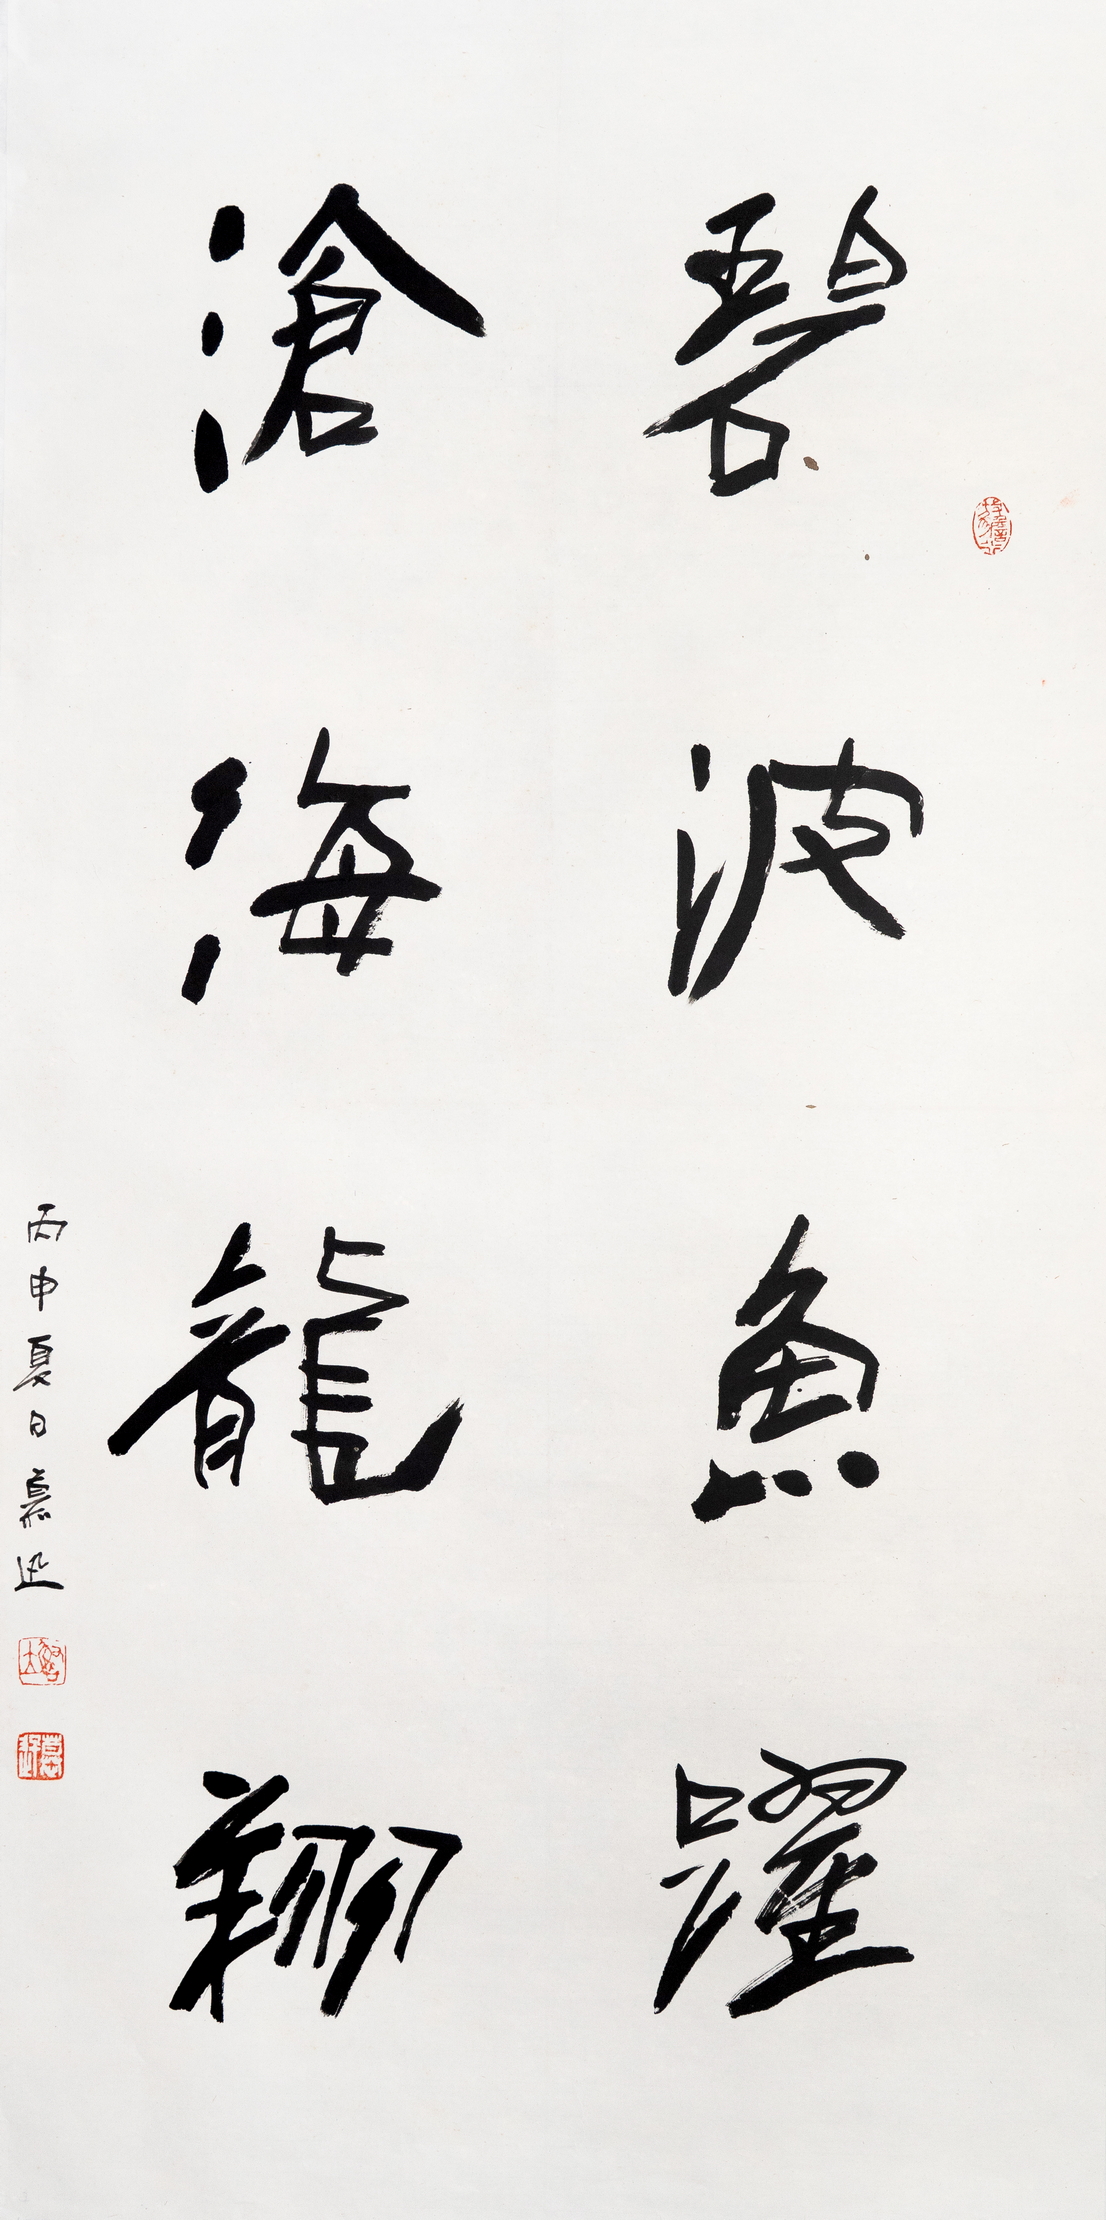 碧波魚躍
滄海龍翔
丙申夏日慕迅